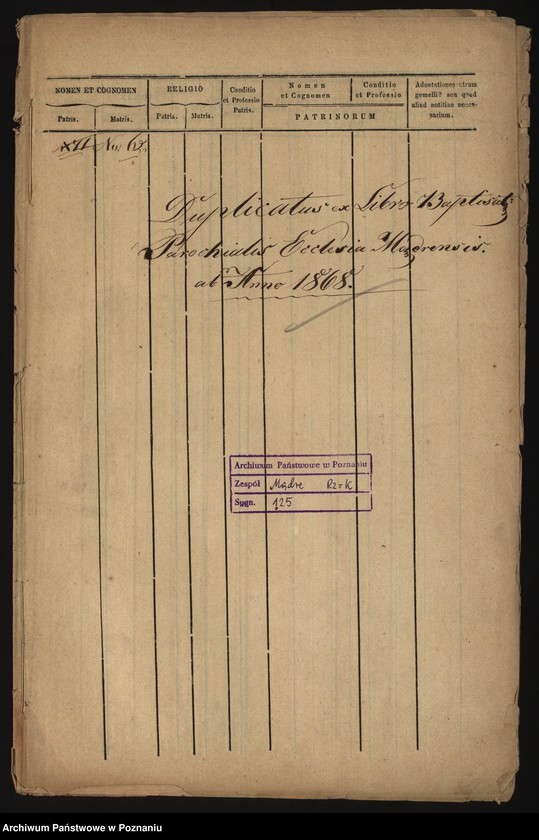 NOMEN ET COGNOMEN
RELIGIO
Conditio et Professio Patris.
Nomen et Cognomen
Conditio et Professio
Adnotationes utrum gemelli? seu quod aliud notitiae necessarium.
Patris.
Matris.
Patris.
Matris.
PATRINORUM
XII No: 62.
Duplicatus ex Libro Baptisat:
Parochialis Ecclesia Mądrensis.
ab Anno 1868.
Archiwum Państwowe w Poznaniu
Zespół Mądre Rz-K
Sygn. 125
Archiwum Państwowe w Poznaniu